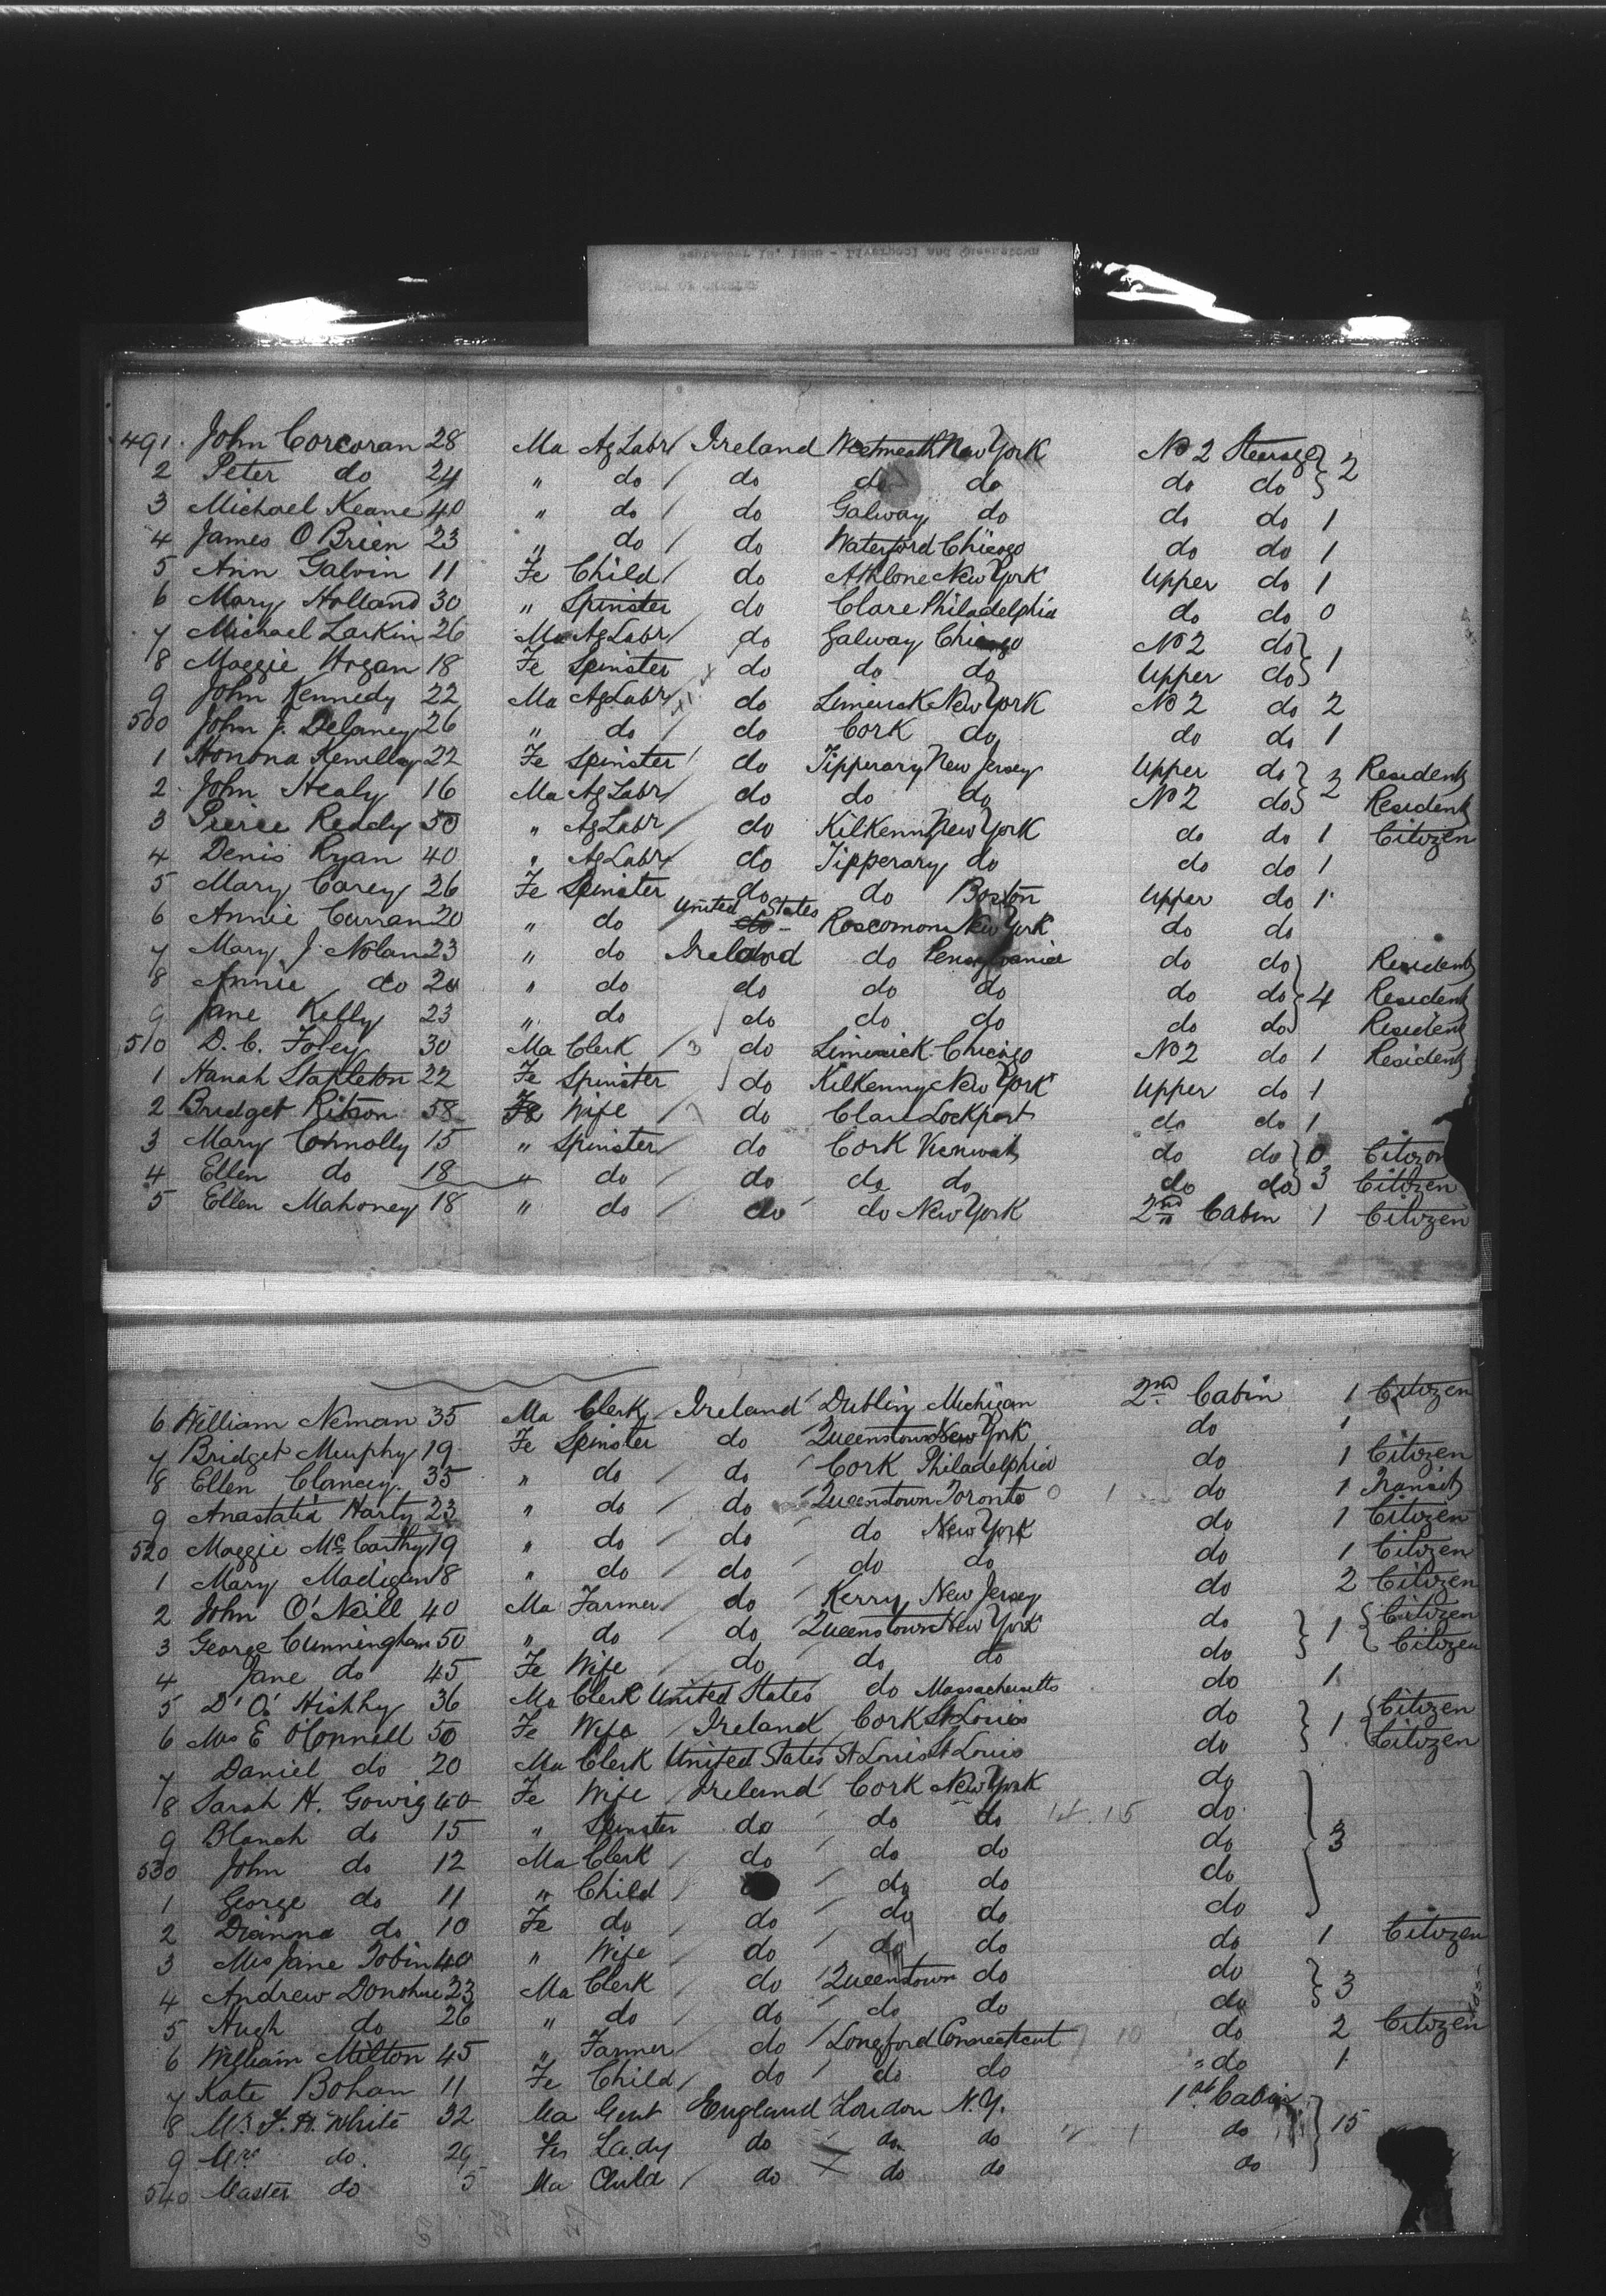 491 John Corcoran 28 Ma Ag Labr Ireland Westmeath New York No 2 Steerage } 2
2 Peter do 24 " do do do do do do
3 Michael Keane 40 " do do Galway do do do 1
4 James O'Brien 23 " do do Waterford Chicago do do 1
5 Ann Galvin 11 Fe Child do Athlone New York Upper do 1
6 Mary Holland 30 " Spinster do Clare Philadelphia do do 0
7 Michael Larkin 26 Ma Ag Labr do Galway Chicago No 2 do } 1
8 Maggie Hogan 18 Fe Spinster do do do Upper do
9 John Kennedy 22 Ma Ag Labr do Limerick New York No 2 do 2
500 John J. Delaney 26 " do do Cork do do do 1
1 Honona 22 Fe Spinster do Tipperary New Jersey Upper do } 2 Resident
2 John Healy 16 Ma Ag Labr do do do No 2 do Resident
3 Pierce Ready 50 " Ag Labr do Kilkenny New York do do 1 Citizen
4 Denis Ryan 40 " Ag Labr do Tipperary do do do 1
5 Mary Carey 26 Fe Spinster do do Boston Upper do 1
6 Annie Curran 20 " do United States Roscomon New York do do
7 Mary J. Nolan 23 " do Ireland do Pensylvania do do } Resident
8 Annie do 20 " do do do do do do 4 Resident
9 Jane Kelly 23 " do do do do do do Resident
510 D. C. Foley 30 Ma Clerk 3 do Limerick Chicago No 2 do 1 Resident
1 Hanah Stapleton 22 Fe Spinster do Kilkenny New York Upper do 1
2 Bridget 58 Fe Wife do Clare Lockport do do 1
3 Mary Connolly 15 " Spinster do Cork do do } 0 Citizen
4 Ellen do 18 " do do do do do do 3 Citizen
5 Ellen Mahoney 18 " do do do New York 2nd Cabin 1 Citizen
6 William Neman 35 Ma Clerk Ireland Dublin Michigan 2nd Cabin 1 Citizen
7 Bridget Murphy 19 Fe Spinster do Queenstown New York do 1
8 Ellen Clancy 35 " do do Cork Philadelphia do 1 Citizen
9 Anastatia Harty 23 " do do Queenstown Toronto 0 1 do 1 Transit
520 Maggie McCarthy 19 " do do do New York do 1 Citizen
1 Mary Madigan 18 " do do do do do 1 Citizen
2 John O'Neill 40 Ma Farmer do Kerry New Jersey do 2 Citizen
3 George Cunningham 50 " do do Queenstown New York do } 1 { Citizen
4 Jane do 45 Fe Wife do do do do Citizen
5 D' O' 36 Ma Clerk United States do Massachusetts do 1
6 Mrs E O'Connell 50 Fe Wife Ireland Cork St Louis do } 1 { Citizen
7 Daniel do 20 Ma Clerk United States St Louis St Louis do Citizen
8 Sarah H. Gowig 40 Fe Wife Ireland Cork New York do
9 Blanch do 15 " Spinster do do do 15 do
530 John do 12 Ma Clerk do do do do } 3
1 George do 11 " Child do do do
2 Dianna do 10 Fe do do do do do
3 Mrs Jane Tobin 40 " Wife do do do do 1 Citizen
4 Andrew Donohue 23 Ma Clerk do Queenstown do do } 3
5 Hugh do 26 " do do do do do
6 William Milton 45 " Farmer do Longford Connecticut 10 do 2 Citizen
7 Kate Bohan 11 Fe Child do do do " do 1
8 Mr F. H. White 32 Ma Gent England London N.Y. 1st Cabin
9 Mrs do 29 Fe Lady do do do 1 do } 15
540 Master do 5 Ma Child do do do do